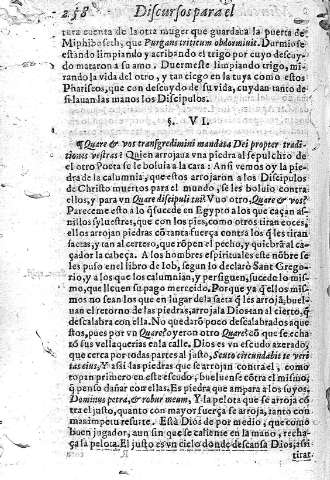 258 Discursos para el
tura cuenta de la otra muger que guardaua la puerta de
Miphiboseth, que Purgans triticum obdormiuit. Durmiose
estando limpiando y acribando el trigo por cuyo descuy-
do mataron a su amo. Duermeste limpiando trigo, mi-
rando la vida del otro, y tan ciego en la tuya como estos
Phariseos, que con descuydo de su vida, cuydan tanto de
si lauan las manos los Discipulos.
§. VI.
¶ Quare & vos transgredimini mandata Dei propter tradi-
tiones vestras? Quien arrojaua vna piedra al sepulchro de
el otro Poeta se le boluia a la cara: Ansi vemos oy la pie-
dra de la calumnia, que estos arrojaren a los Discipulos
de Christo muertos para el mundo, se les boluio contra
ellos, y para vn Quare discipuli tui? Vuo otro, Quare & vos?
Pareceme esto a lo q̃ sucede en Egypto a los que caçan as-
nillos syluestres, que con los pies, como otros tiran coces,
ellos arrojan piedras cõ tanta fuerça contra los q̃ les tiran
saetas, y tan al certero, que rõpen el pecho, y quiebrã al ca-
çador la cabeça. A los hombres espirituales este nõbre se
les puso en el libro de Iob, segun lo declarò Sant Grego-
rio, y a los que los calumnian, y persiguen, sucede lo mis-
mo, que lleuen su pago merecido. Porque ya q̃ ellos mis-
mos no sean los que en lugar dela saeta q̃ les arrojã, buel-
uan el retorno de las piedras, arrojala Dios tan al cierto, q̃
descalabra con ella. No quedarõ poco descalabrados aque
stos, pues por vn Quare? oyeron otro Quare? cõ que se echa
tõ sus vellaquerias en la calle. Dios es vn escudo azerado,
que cerca por todas partes al justo, Scuto circundabit te veri
tas eius, Y assi las piedras que se arrojan contra el, como
topan primero en este escudo, bueluense cõtra el mismo, q̃
penso dañar con ellas. Es piedra que ampara a los suyos.
Dominus petra, & robur meum, Y la pelota que se arroja cõ
tra el justo, quanto con mayor fuerça se arroja, tanto con
mas impetu resurte. Està Dios de por medio, que como
buen jugador, aun sin que se caliente en la mano, recha-
ça la pelota. El justo es vn cielo donde descansa Dios, assi
tirar